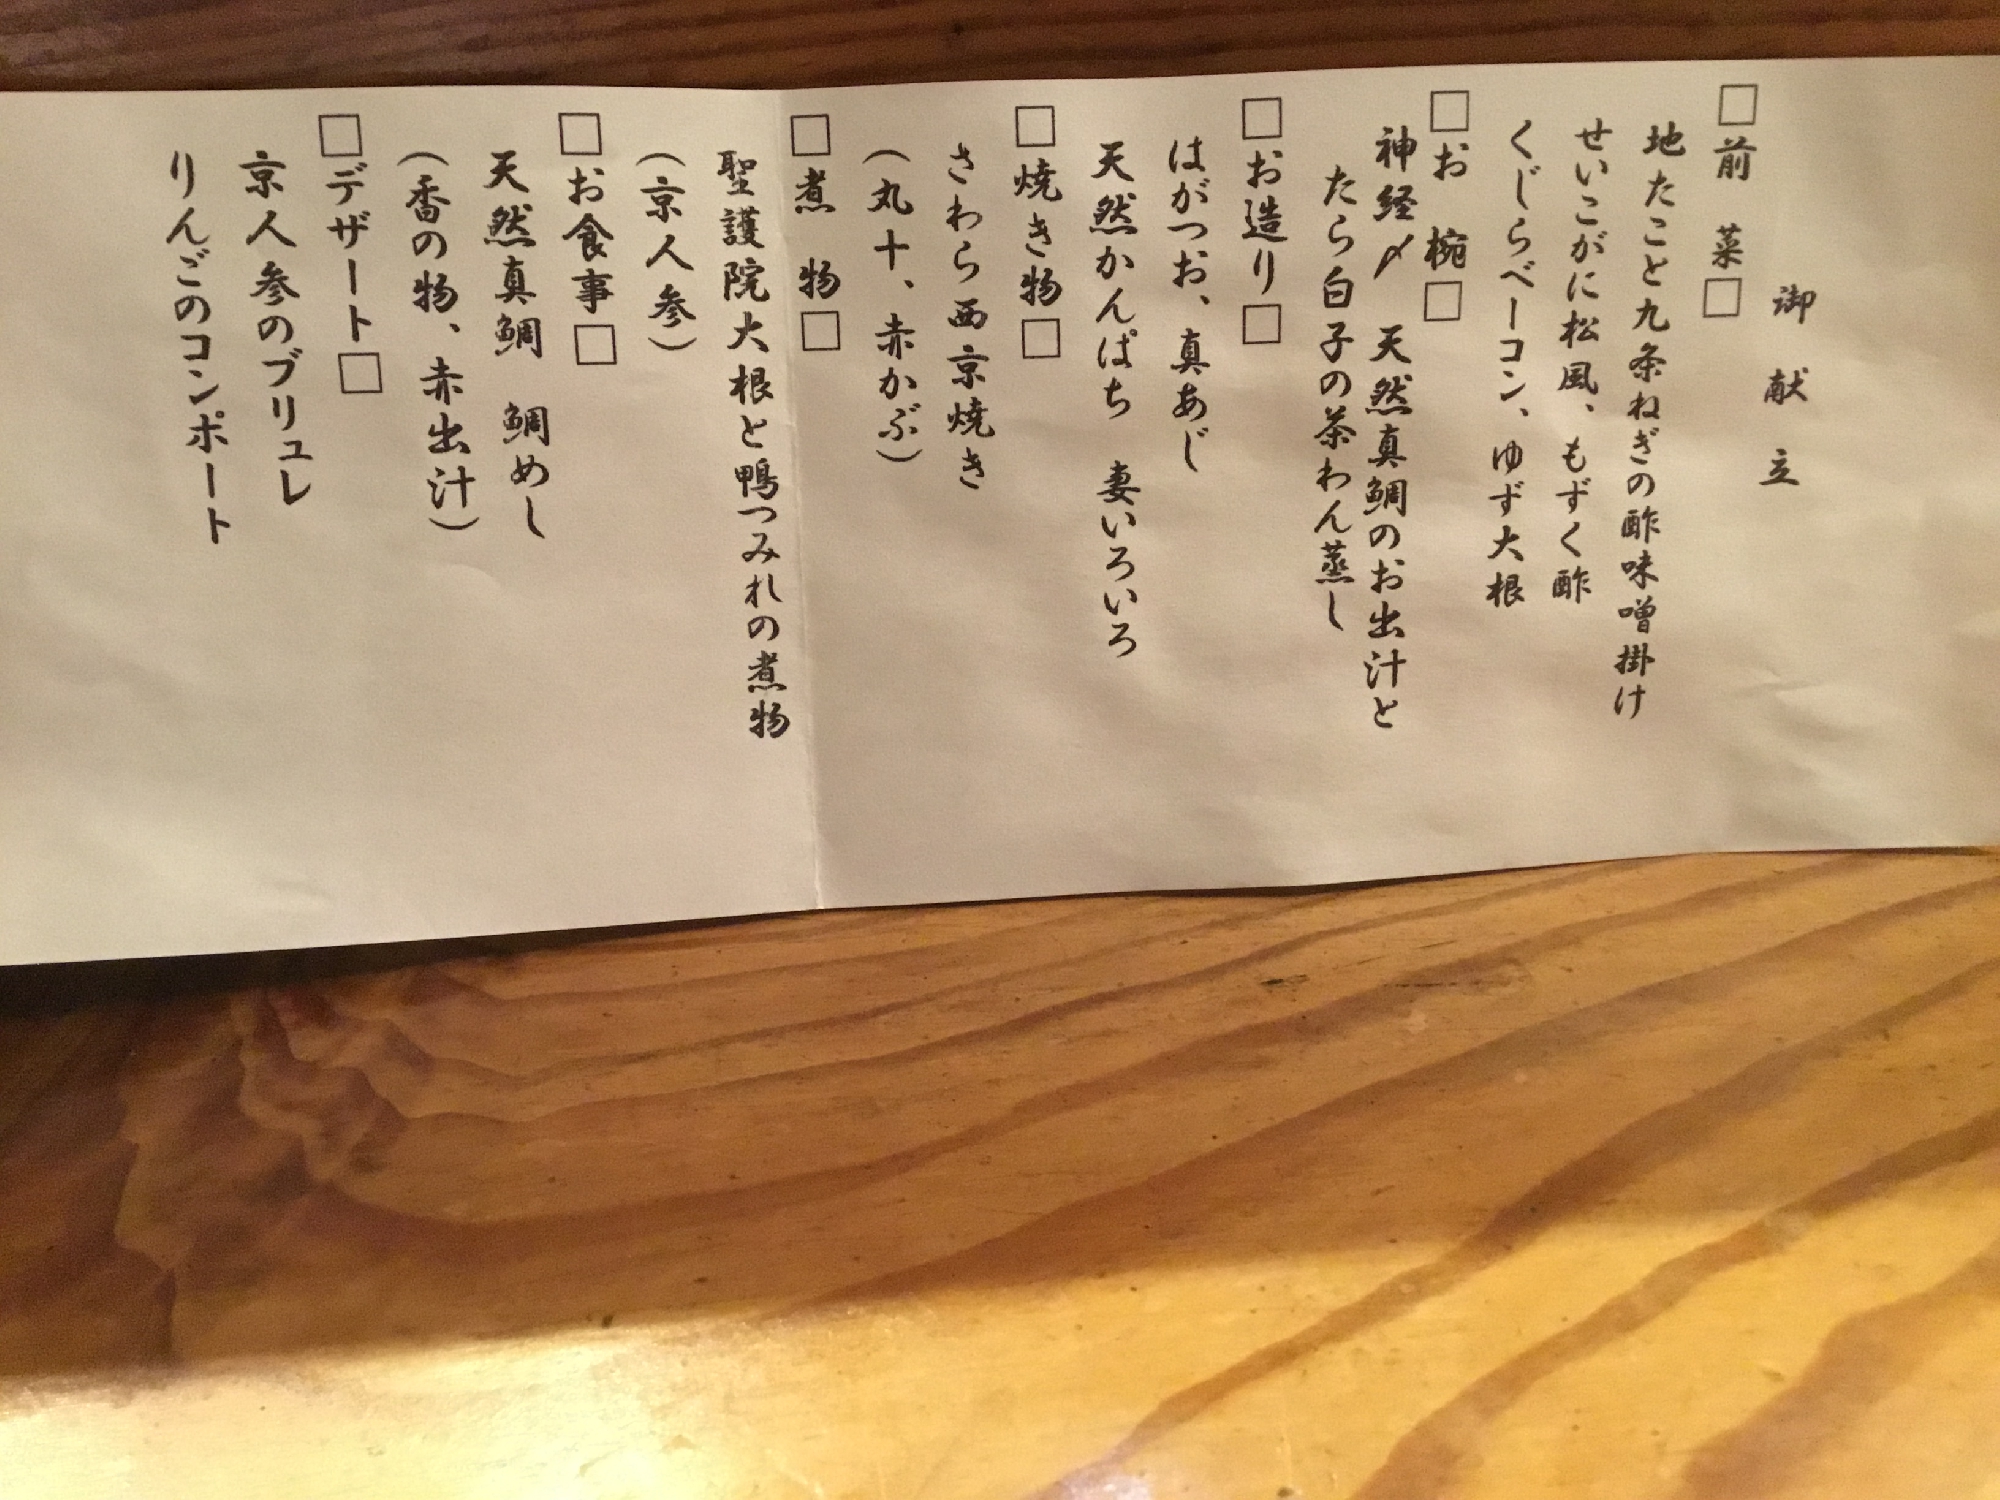 御献立
□前菜□
地たこと九条ねぎの酢味噌掛け
せいこがに松風、もずく酢
くじらベーコン、ゆず大根
□お椀□
神経〆 天然真鯛のお出汁と
たら白子の茶わん蒸し
□お造り□
はがつお、真あじ
天然かんぱち 妻いろいろ
□焼き物□
さわら西京焼き
(丸十、赤かぶ)
□煮物□
聖護院大根と鴨つみれの煮物
(京人参)
□お食事□
天然真鯛 鯛めし
(香の物、赤出汁)
□デザート□
京人参のブリュレ
りんごのコンポート